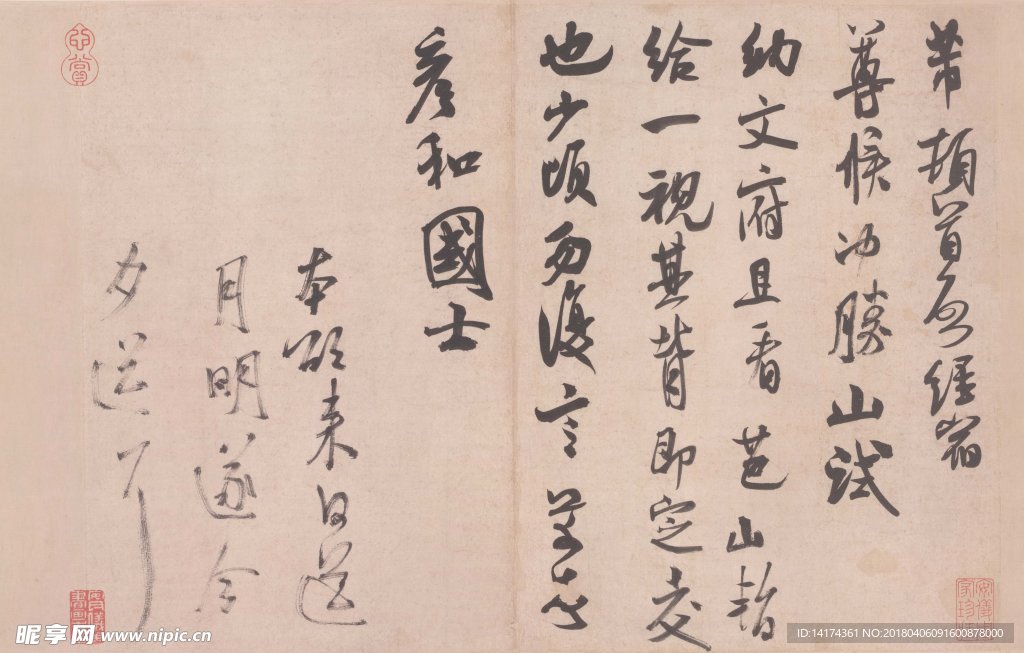 芾顿首启经宿
尊候冲勝山試
納文府且看芭山暫
給一視其背即定交
也少頃勿復言芾頓首
彦和國士
本欲来日送
月明遂今
夕送耳
昵享网 www.nipic.cn
ID:14174361 NO:20180406091600878000